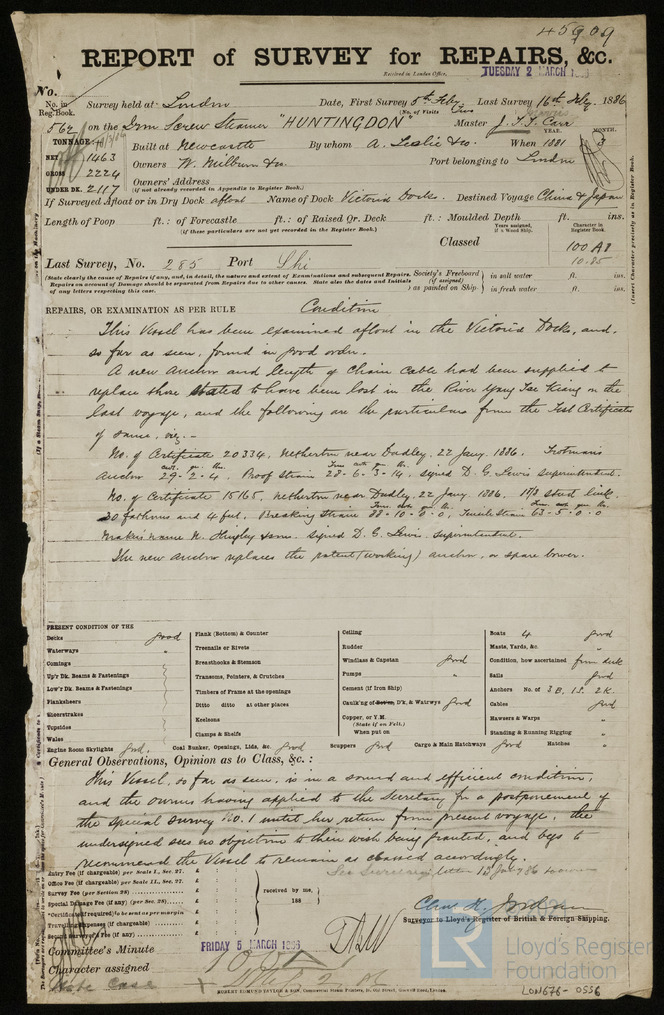 45909
REPORT of SURVEY for REPAIRS, &c.
Received in London Office, TUESDAY 2 MARCH 1886
No.
No. in Reg. Book. Survey held at London Date, First Survey 5th Feby Last Survey 16th Feby. 1886
(No. of Visits
562 on the Iron Screw Steamer "HUNTINGDON" Master J. T. J. Carr
TONNAGE Built at Newcastle By whom A. Leslie & Co. When 1881 YEAR. MONTH. 3
NET 1463 Owners W. Milburn & Co. Port belonging to London
GROSS 2224 Owners' Address
UNDER DK. 2117 (if not already recorded in Appendix to Register Book.)
If Surveyed Afloat or in Dry Dock afloat Name of Dock Victoria Docks. Destined Voyage China & Japan
Length of Poop ft.: of Forecastle ft.: of Raised Qr. Deck ft.: Moulded Depth ft. ins.
(if these particulars are not yet recorded in the Register Book.)
Years assigned, if a Wood Ship. Character in Register Book.
Classed 100 A1
10.85
Last Survey, No. 285 Port Shi
(State clearly the cause of Repairs if any, and, in detail, the nature and extent of Examinations and subsequent Repairs.
Repairs on account of Damage should be separated from Repairs due to other causes. State also the dates and Initials
of any letters respecting this case.)
Society's Freeboard (if assigned) as painted on Ship- in salt water ft. ins.
in fresh water ft. ins.
REPAIRS, OR EXAMINATION AS PER RULE Condition
This Vessel has been examined afloat in the Victoria Docks, and,
so far as seen, found in good order.
A new Anchor and length of Chain Cable had been supplied to
replace those stated to have been lost in the River Yang Tse Kiang on the
last voyage, and the following are the particulars from the Test Certificates
of same, viz.-
No. of Certificate 20334, Netherton near Dudley, 22 Jany. 1886. Trotman's
Anchor 29-2-4, Proof Strain 28-6-3-14, signed D. G. Lewis Superintendent.
No. of Certificate 15165, Netherton near Dudley, 22 Jany. 1886. 1 11/8 stud link.
30 fathoms and 4 feet, Breaking Strain 88-10-0-0, Tensile Strain 63-5-0-0
Makers name N. Hingley & Sons. signed D. G. Lewis. Superintendent.
The new Anchor replaces the patent (working) anchor, or spare bower.
PRESENT CONDITION OF THE
Decks good
Waterways "
Comings
Up'r Dk. Beams & Fastenings
Low'r Dk. Beams & Fastenings
Planksheers
Sheerstrakes
Topsides
Wales
Engine Room Skylights good
Plank (Bottom) & Counter
Treenails or Rivets
Breasthooks & Stemson
Transoms, Pointers, & Crutches
Timbers of Frame at the openings
Ditto ditto at other places
Keelsons
Clamps & Shelfs
Coal Bunker, Openings, Lids, &c. good
Ceiling
Rudder
Windlass & Capstan good
Pumps "
Cement (if Iron Ship)
Caulk'g of Bot'm, D'k, & Watrwys good
Copper, or Y.M. (State if on Felt.)
When put on
Scuppers good Cargo & Main Hatchways good
Boats 4 good
Masts, Yards, &c. "
Condition, how ascertained from deck
Sails good
Anchors No. of 3 B, 1 S, 2 K.
Cables good
Hawsers & Warps "
Standing & Running Rigging "
Hatches "
General Observations, Opinion as to Class, &c.:
This Vessel, so far as seen, is in a sound and efficient condition,
and the owners having applied to the Secretary for a postponement of
the special survey No. 1 until her return from present voyage, the
undersigned sees no objection to their wish being granted, and begs to
recommend the Vessel to remain as classed accordingly.
See Secretary's letter
Entry Fee (if chargeable) per Scale I., Sec. 27. £ : :
Office Fee (if chargeable) per Scale II., Sec. 27. £ : :
Survey Fee (per Section 28) £ : :
Special Damage Fee (if any) (per Sec. 28) £ : :
*Certificate (if required) to be sent as per margin
Travelling Expenses (if chargeable) £ : :
Second Survey Fee (if any) £ : :
received by me,
188
Surveyor to Lloyd's Register of British & Foreign Shipping.
Committee's Minute FRIDAY 5 MARCH 1886
Character assigned 100 A
Note Case
ROBERT EDMUND TAYLOR & SON, Commercial Steam Printers, 19, Old Street, Goswell Road, London.
LR Lloyd's Register Foundation
LON676-0556